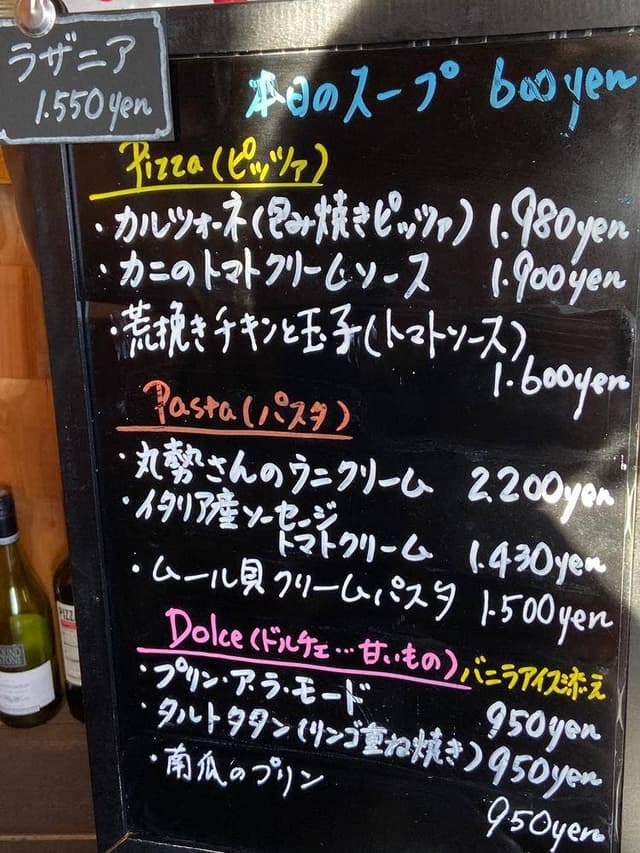 ラザニア
1.550yen
本日のスープ 600yen
Pizza(ピッツァ)
・カルツォーネ(包み焼きピッツァ) 1.980yen
・カニのトマトクリームソース 1.900yen
・荒挽きチキンと玉子(トマトソース)
1.600yen
Pasta(パスタ)
・丸勢さんのウニクリーム 2.200yen
・イタリア産ソーセージ
トマトクリーム 1.430yen
・ムール貝クリームパスタ 1.500yen
Dolce(ドルチェ…甘いもの)
バニラアイス添え
・プリン・ア・ラ・モード 950yen
・タルトタタン(リンゴ重ね焼き) 950yen
・南瓜のプリン
950yen